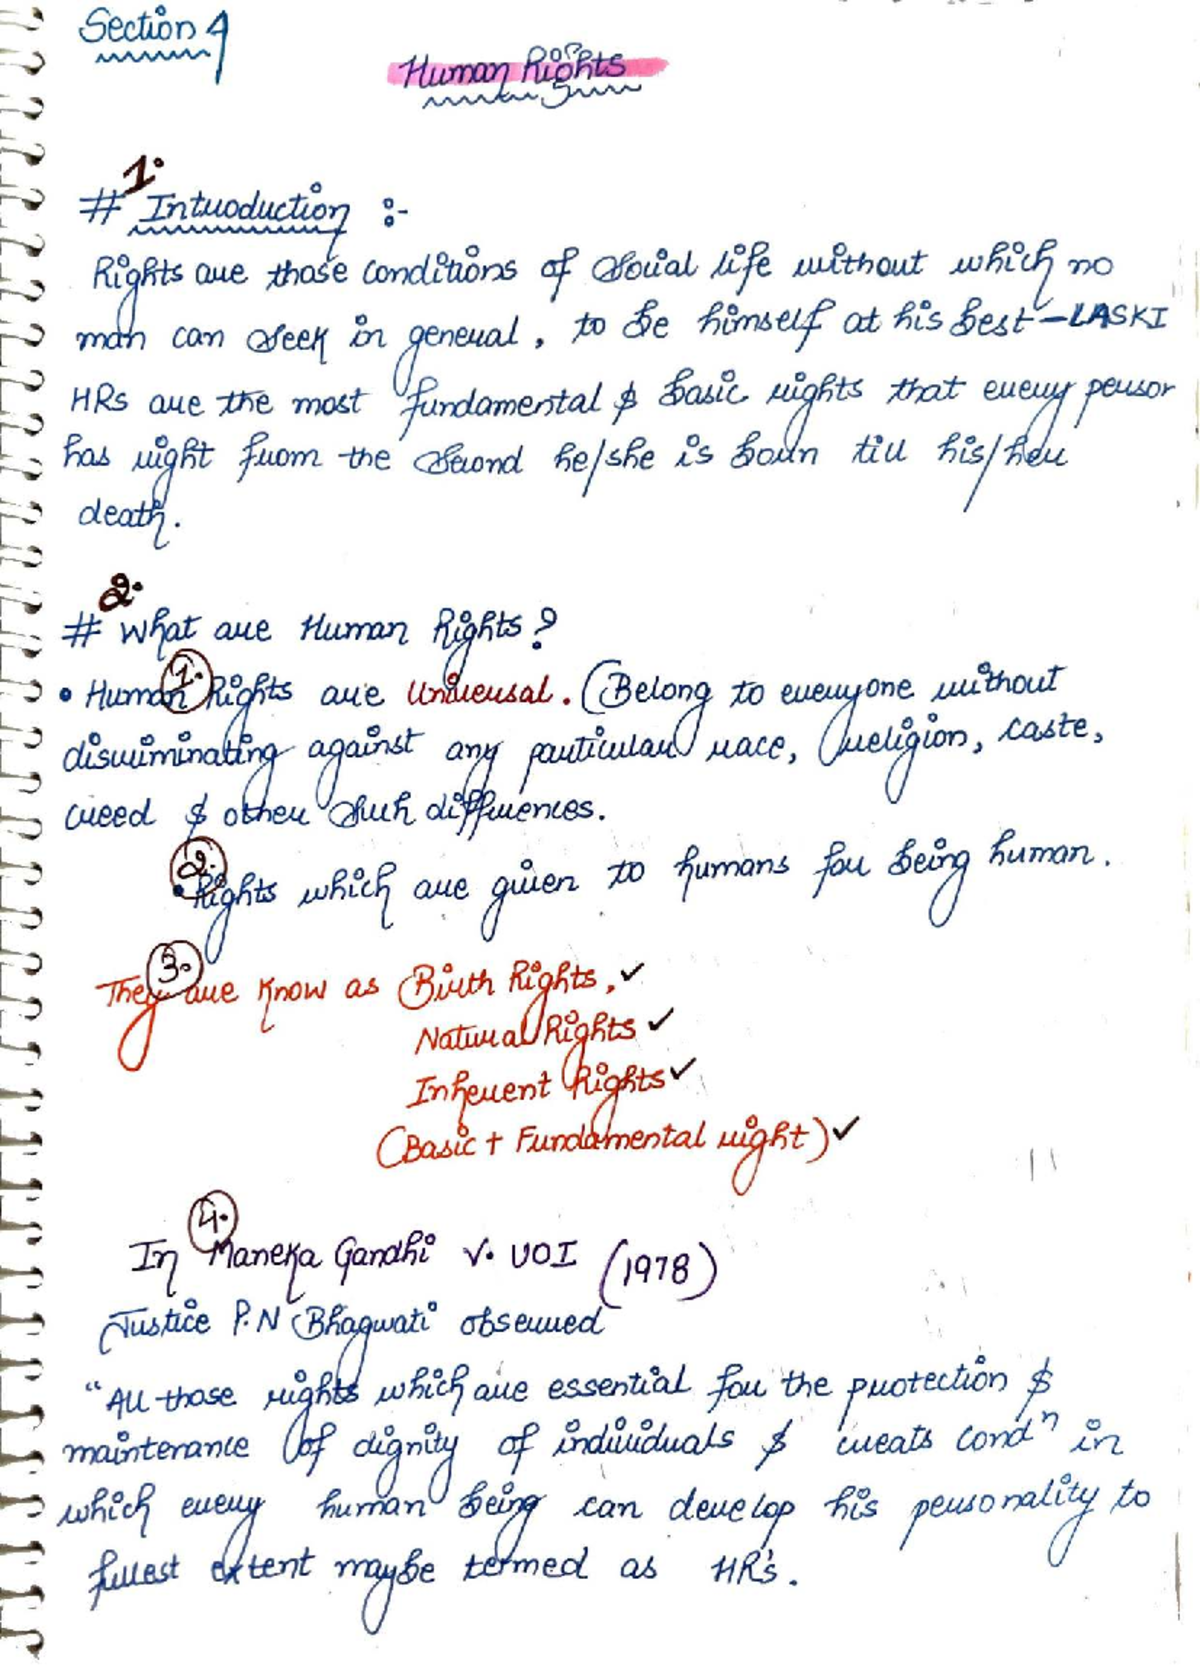 Section 4
Human Rights
1.
# Introduction :-
Rights are those conditions of social life without which no
man can seek in general, to be himself at his best - LASKI
HRs are the most fundamental & basic rights that every person
has right from the second he/she is born till his/her
death.
2.
# What are Human Rights?
1.
• Human Rights are Universal. (Belong to everyone without
discriminating against any particular race, religion, caste,
creed & other such differences.
2.
• Rights which are given to humans for being human.
3.
They are Know as Birth Rights, ✓
Natural Rights ✓
Inherent Rights ✓
(Basic + Fundamental right) ✓
4.
In Maneka Gandhi v. UOI (1978)
Justice P.N Bhagwati observed
"All those rights which are essential for the protection &
maintenance of dignity of individuals & creats condⁿ in
which every human being can develop his personality to
fullest extent maybe termed as HR's.